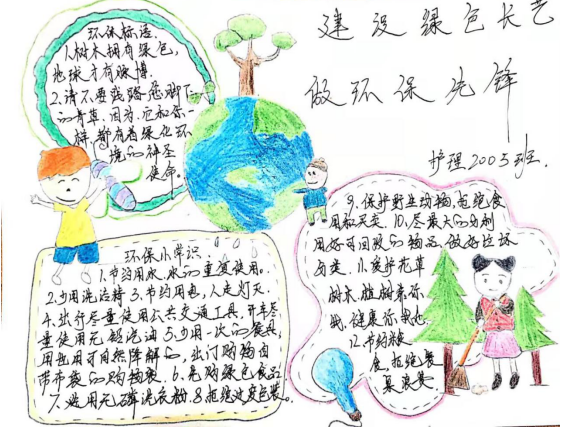 建设绿色长艺
做环保先锋
护理2003班.
环保标语:
1.树木拥有绿色,
地球才有脉搏.
2.请不要践踏您脚下
的青草.因为.它和你一
样,都有着绿化环
境的神圣
使命.
环保小学识.
1.节约用水.水的重复使用。
2.少用洗洁精 3.节约用电,人走灯灭
4.出行尽量使用公共交通工具.开车尽
量使用无铅汽油 5.少用一次的餐具,
用也用可自然降解的.出门购物自
带布袋的购物袋. 6.先购绿色食品
7.选用无磷洗衣粉.8.拒绝过度包装。
9.保护野生动物,拒绝食
用和买卖.10.尽最大的分利
用好可回收的物品.做好垃圾
分类.11.爱护花草
树木.植树来你
我,健康你我他
12.节约粮
食,拒绝餐
桌浪费